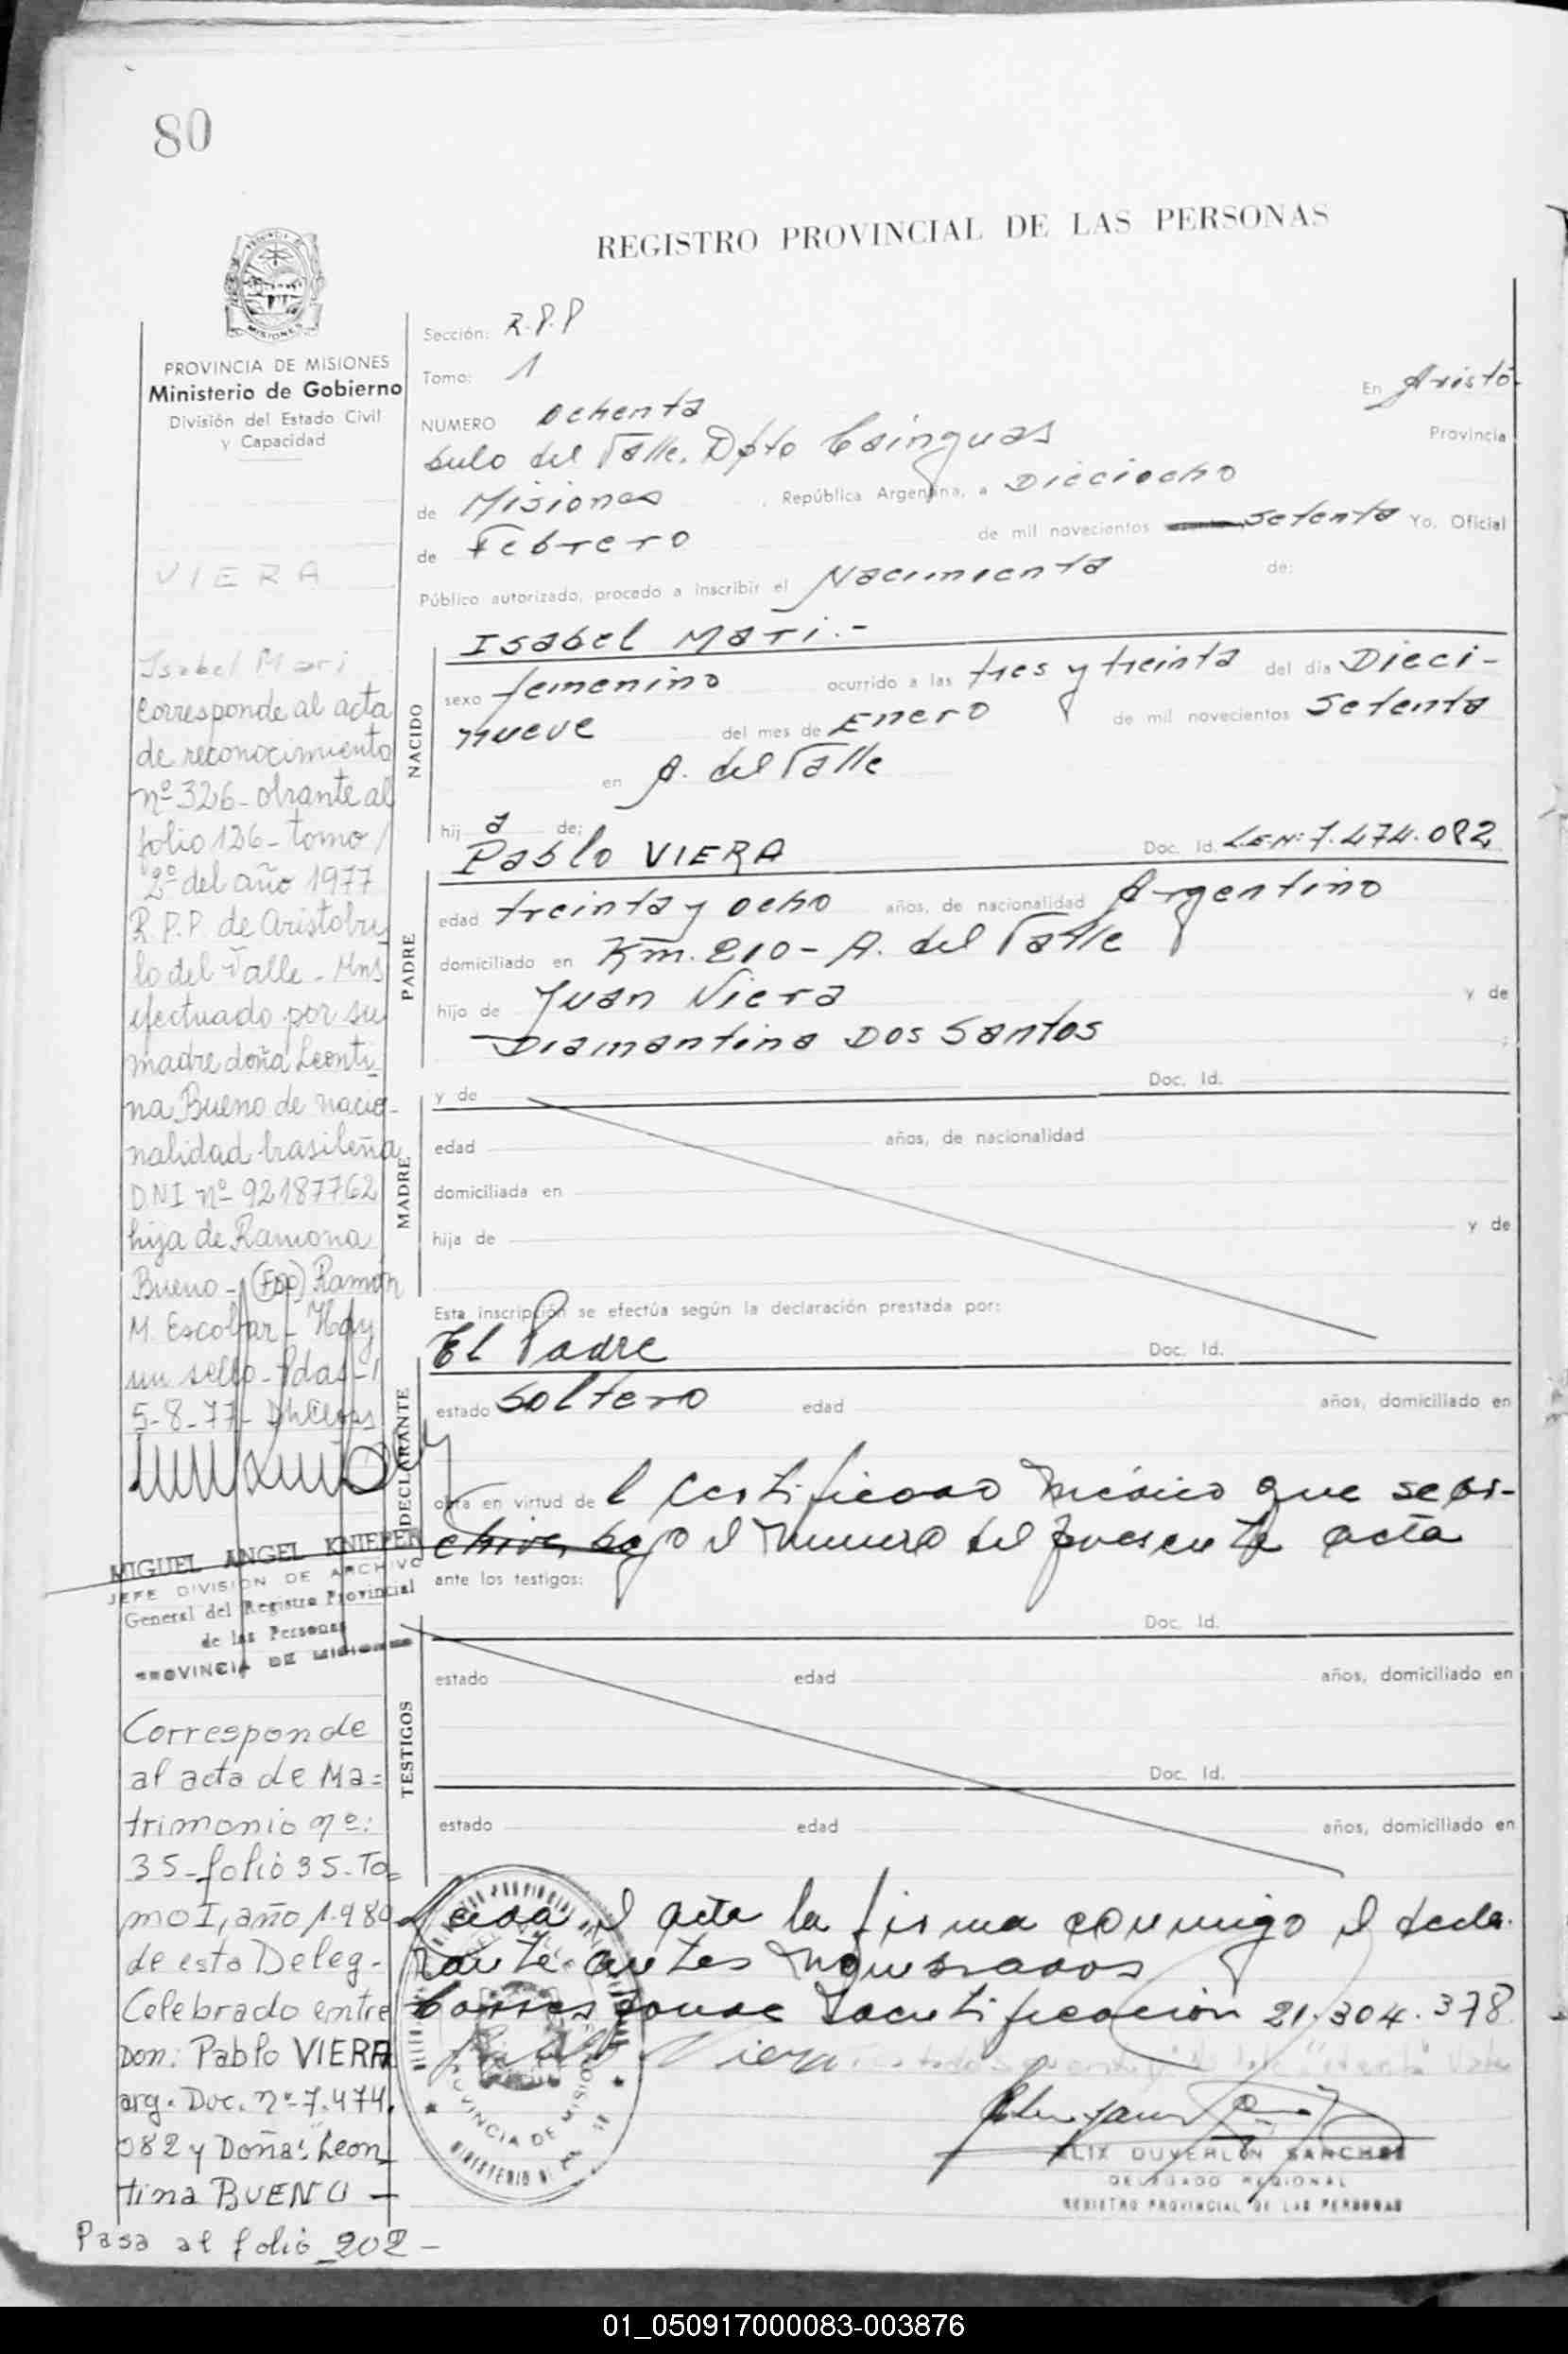 80
REGISTRO PROVINCIAL DE LAS PERSONAS
MISIONES
PROVINCIA DE MISIONES
Ministerio de Gobierno
División del Estado Civil
y Capacidad
VIERA
Isabel Mari
Corresponde al acta
de reconocimiento
nº 326- obrante al
folio 126- tomo /
2º del año 1977
R.P.P. de Aristobu_
lo del Valle - Mns
efectuado por su
madre doña Leonti_
na Bueno de nacio-
nalidad brasileña
D.NI nº 92187762
hija de Ramona
Bueno - (Fdo) Ramón
M. Escobar - Hay
un sello - Pdas -
5-8-77-
MIGUEL ANGEL KNIEPER
JEFE DIVISION DE ARCHIVO
General del Registro Provincial
de las Personas
PROVINCIA DE MISIONES
Corresponde
al acta de Ma=
trimonio nº:
35-folio 35-To=
mo I, año 1.980
de esta Deleg-
Celebrado entre
Don: Pablo VIERA
arg. Doc. nº 7.474.
082 y Doña: Leon_
tina BUENO -
Pasa al folio 202-
Sección: R.P.P
Tomo: 1
En Aristó-
NUMERO Ochenta
bulo del Valle. Dpto Cainguas Provincia
de Misiones , República Argentina, a Dieciocho
de Febrero de mil novecientos setenta Yo, Oficial
Público autorizado, procedo a inscribir el Nacimiento de:
Isabel Mari.-
NACIDO
sexo femenino ocurrido a las tres y treinta del día Dieci-
nueve del mes de Enero de mil novecientos Setenta
en A. del Valle
hij a de:
Pablo VIERA Doc. Id. L.E.Nº: 7.474.082
PADRE
edad treinta y ocho años, de nacionalidad Argentino
domiciliado en Km. 210 - A. del Valle
hijo de Juan Viera y de
Diamantina Dos Santos ;
MADRE
y de Doc. Id.
edad años, de nacionalidad
domiciliada en
hija de y de
Esta inscripción se efectúa según la declaración prestada por:
El Padre Doc. Id.
DECLARANTE
estado Soltero edad años, domiciliado en
obra en virtud de l Certificado médico que se ar-
chiva bajo el numero del presente acta
ante los testigos:
TESTIGOS
Doc. Id.
estado edad años, domiciliado en
Doc. Id.
estado edad años, domiciliado en
Leida el acta la firma conmigo el decla-
rante antes nombrados
Corresponde Identificación 21.304.378
Viera
PROVINCIA DE MISIONES
MINISTERIO
FELIX DUVERLON SANCHEZ
DELEGADO REGIONAL
REGISTRO PROVINCIAL DE LAS PERSONAS
01_050917000083-003876